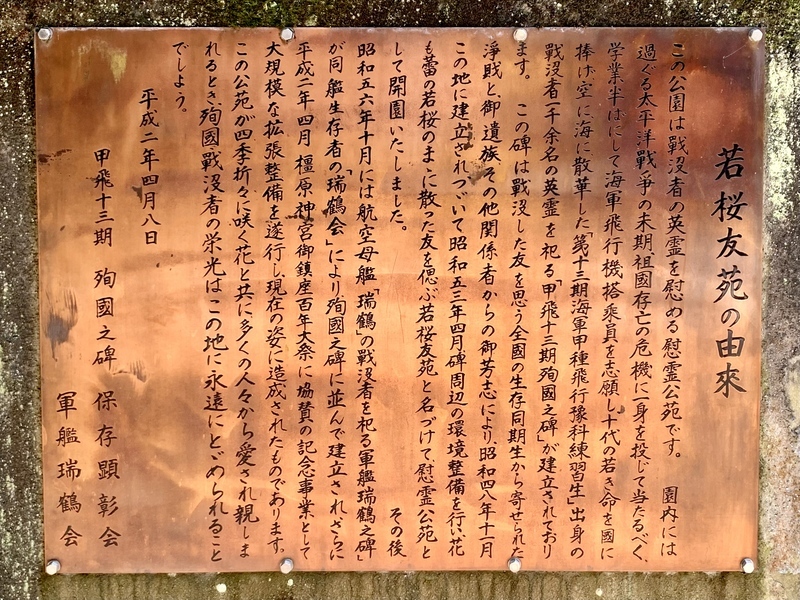 若桜友苑の由來
この公園は戰没者の英霊を慰める慰霊公苑です。　園内には
過ぐる太平洋戰爭の末期祖國存亡の危機に一身を投じて当たるべく、
学業半ばにして海軍飛行機搭乗員を志願し十代の若き命を國に
捧げ空に海に散華した「第十三期海軍甲種飛行豫科練習生」出身の
戰没者一千余名の英霊を祀る「甲飛十三期殉國之碑」が建立されており
ます。　この碑は戰没した友を思う全國の生存同期生から寄せられた
淨財と、御遺族その他関係者からの御芳志により、昭和四八年十一月
この地に建立されつづいて昭和五三年四月碑周辺の環境整備を行い、花
も蕾の若桜のまゝに散った友を偲ぶ若桜友苑と名づけて慰霊公苑と
して開園いたしました。　その後
昭和五六年十月には航空母艦「瑞鶴」の戰没者を祀る軍艦瑞鶴之碑」
が同艦生存者の「瑞鶴会」により殉國之碑に並んで建立され、さらに
平成二年四月　橿原神宮御鎮座百年大祭に協賛の記念事業として
大規模な拡張整備を遂行し、現在の姿に造成されたものであります。
この公苑が四季折々に咲く花と共に多くの人々から愛され親しま
れるとき、殉國戰没者の栄光はこの地に永遠にとどめられること
でしょう。
平成二年四月八日
甲飛十三期　殉國之碑　保存顕彰会
軍艦瑞鶴会